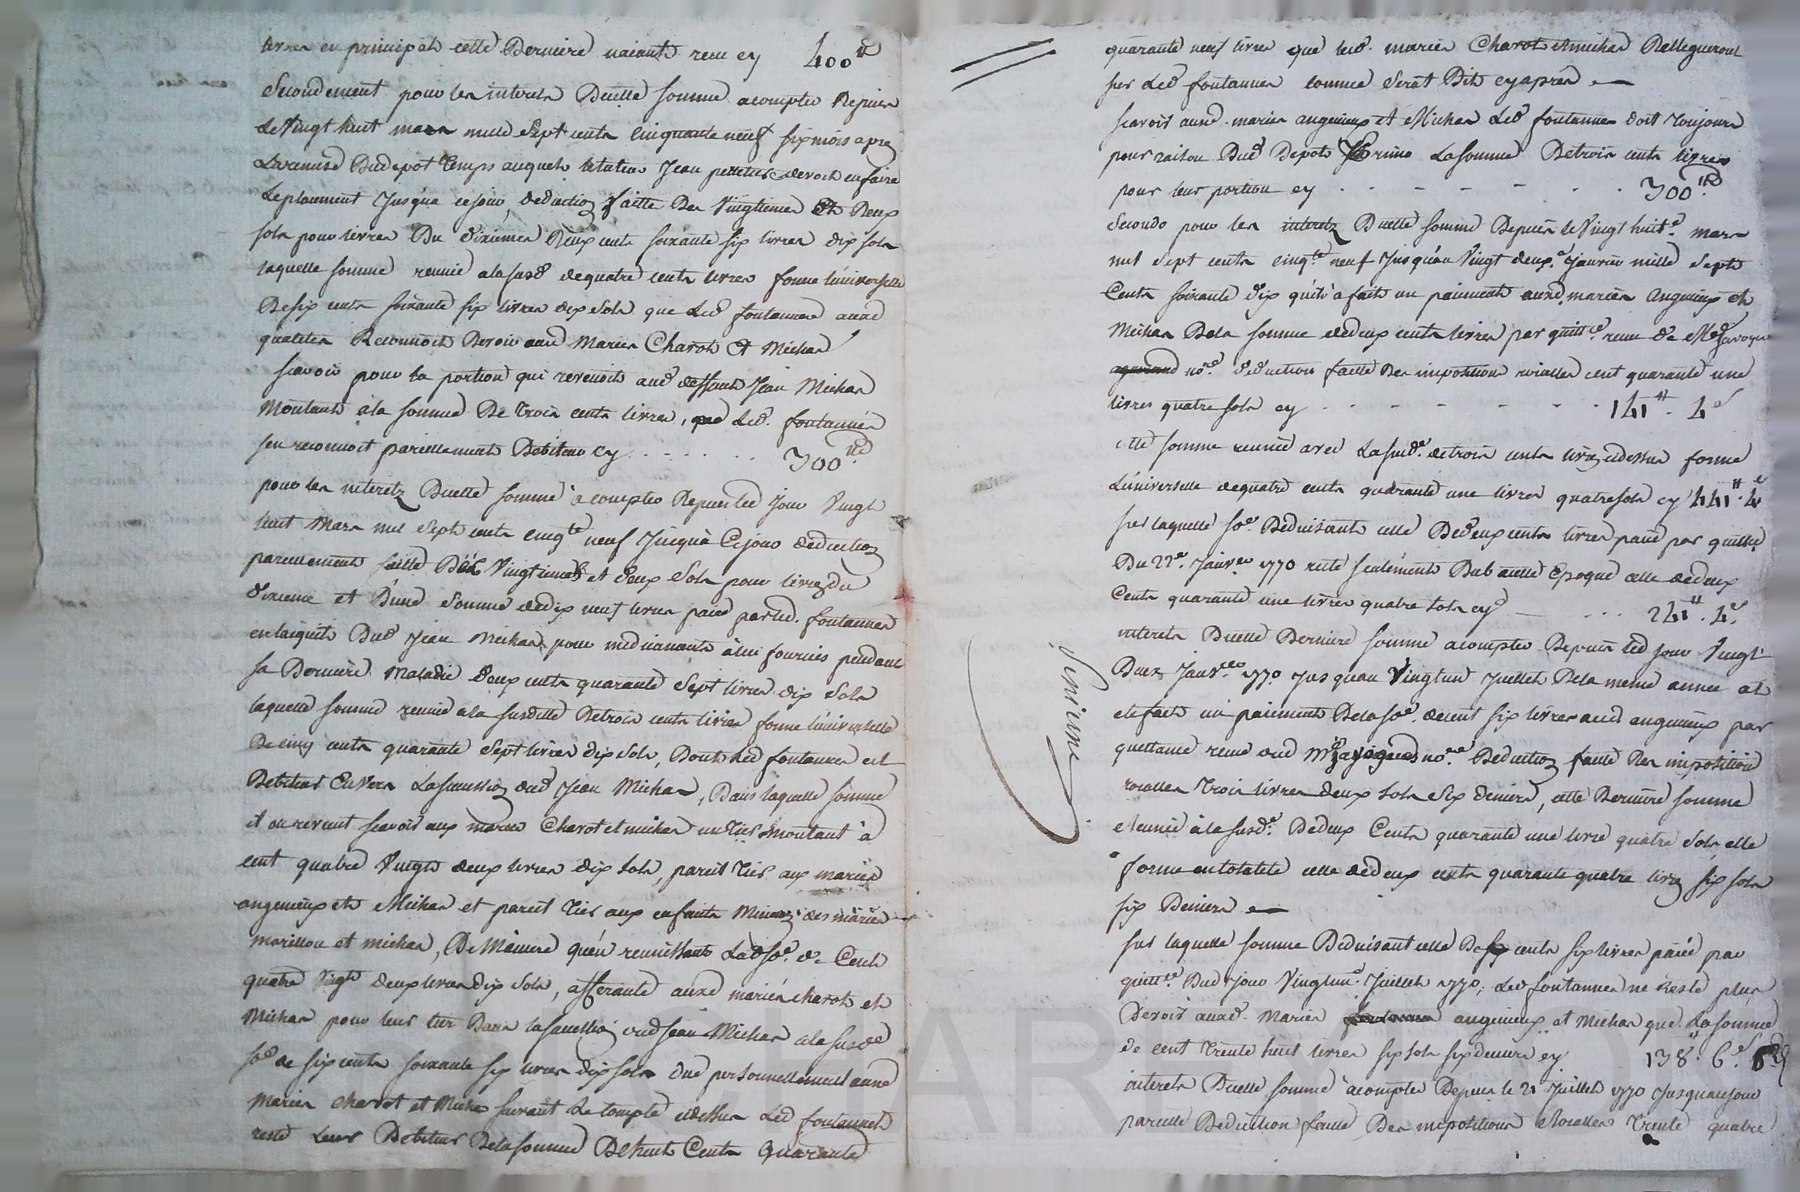 livres en principal cette Derniere naiant recu cy 400ᵗᵗ
Secondement pour les interets D'icelle somme a compter Depuis
Le Vingt huit mars mille sept cents Cinquante neuf six mois apres
Dudepot temps auquel le tuteur Jean devoit en faire
Le placement Jusqu'a ce jour, deduction faitte Des Vingtiemes Et Deux
sols pour livres Du dixieme Deux cents soixante six livres dix sols
laquelle somme reunie a la susd. de quatre cents livres forme l'universelle
De six cents soixante six livres dix sols que Led. fontannes auxd
qualités Reconnoit Devoir auxd Mariés Charot Et Michan
scavoir pour la portion qui revenoit aud deffunt Jean Michan
Montant a la somme De trois cents livres, que Led. fontannes
sen reconnoit pareillement Debiteur cy . . . . . . 300ᵗᵗ
pour les interetz D'icelle somme a compter Depuis led jour Vingt
huit Mars mil Sept cents cinqᵗᵉ neuf Jusqu'à Ce jour deduction
pareillement faitte Des Vingtiemes et deux sols pour livres du
dixieme et D'une somme de dix neuf livres paié par led. fontannes
en lacquit Dud Jean Michan pour medicaments à lui fournis pendant
sa Derniere Maladie deux cents quarante sept livres dix sols
laquelle somme reunie a la susditte De trois cents livres forme l'universelle
De cinq cents quarante sept livres dix sols, Dont led fontannes est
Debiteur Envers La succession dud Jean Michan, Dans laquelle somme
il en revient scavoir aux mariés Charot et michan un tiers montant à
cent quatre Vingts deux livres dix sols, pareil tiers aux mariés
angenieux et Michan et pareil tiers aux enfants Mineurs des mariés
marillon et michan, De Maniere qu'en reunissant Lad soᵉ. de Cent
quatre Vingt deux livres dix sols, afferante auxd mariés charot et
Michan pour leur tiers Dans la succession dud Jean Michan à la susdᵉ
soᵉ de six cents soixante six livres dix sols due personnellement auxd
Mariés charot et Michan suivant Le Compte cidessus Led fontannes
reste Leurs Debiteur De la somme De huit Cents Quarante
quarante neuf livres que lesd. mariés Charot et michan Relleguront
sur Led fontannes comme serat Dit cy apres
scavoir auxd. mariés angenieux et Michan Led fontannes doit toujours
pour raison Dud Depot Primo La somme De trois cents livres
pour leur portion cy . . . . . . . 300ᵗᵗ
Secundo pour les interetz D'icelle somme Depuis le Vingt huitᵉ. mars
mil Sept cents cinqᵗᵉ neuf Jusqu'au Vingt deuxᵉ Janvier mille Sept
Cents soixante dix qu'il a fait un paiement auxd. mariés Angenieux et
Michan De la somme de deux cents livres par quittᶜᵉ. recue de Mᵉ
noʳᵉ. deduction faitte Des impositions roialles cent quarante une
livres quatre sols cy . . . . . . . 141ᵗᵗ. 4ˢ
cette somme reunie avec La susdᵉ. de trois cents livres cidessus forme
L'universelle de quatre cents quarante une livres quatre sols cy 441ᵗᵗ. 4ˢ
sur laquelle soᵉ. Deduisant celle De deux cents livres paié par quittᶜᵉ
Du 22ᵉ. Janvᵉʳ 1770 reste seulement Dub a cette Epoque celle de deux
Cents quarante une livres quatre sols cy . . . 241ᵗᵗ. 4ˢ
interets D'icelle Derniere somme a compter Depuis led jour Vingt
Deux Janvᵉʳ. 1770. Jus qu'au Vingt un Juillet De la meme année at
ete fait un paiement De la soᵉ. de cent six livres auxd angenieux par
quittance recue dud Mᵉ noʳᵉ. Deduction faitte Des impositions
roialles trois livres deux sols Six deniers, cette Derniere somme
reunie à la susdᵉ. De deux Cents quarante une livre quatre Sols elle
forme en totalité celle de deux cents quarante quatre livres six sols
six Deniers
sur laquelle somme Deduisant celle De cents six livres paié par
quittᶜᵉ. Dud jour Vingt unᵉ. Juillet 1770; Led fontannes ne Reste plus
Devoir auxd. Mariés angenieux et Michan que La somme
de cent trente huit livres six sols six deniers cy 138ᵗᵗ. 6ˢ. 6ᵈ
interets D'icelle somme a compter Depuis le 21 Juillet 1770 Jusqu'au jour
pareille Deduction faitte Des impositions Roialles trente quatre